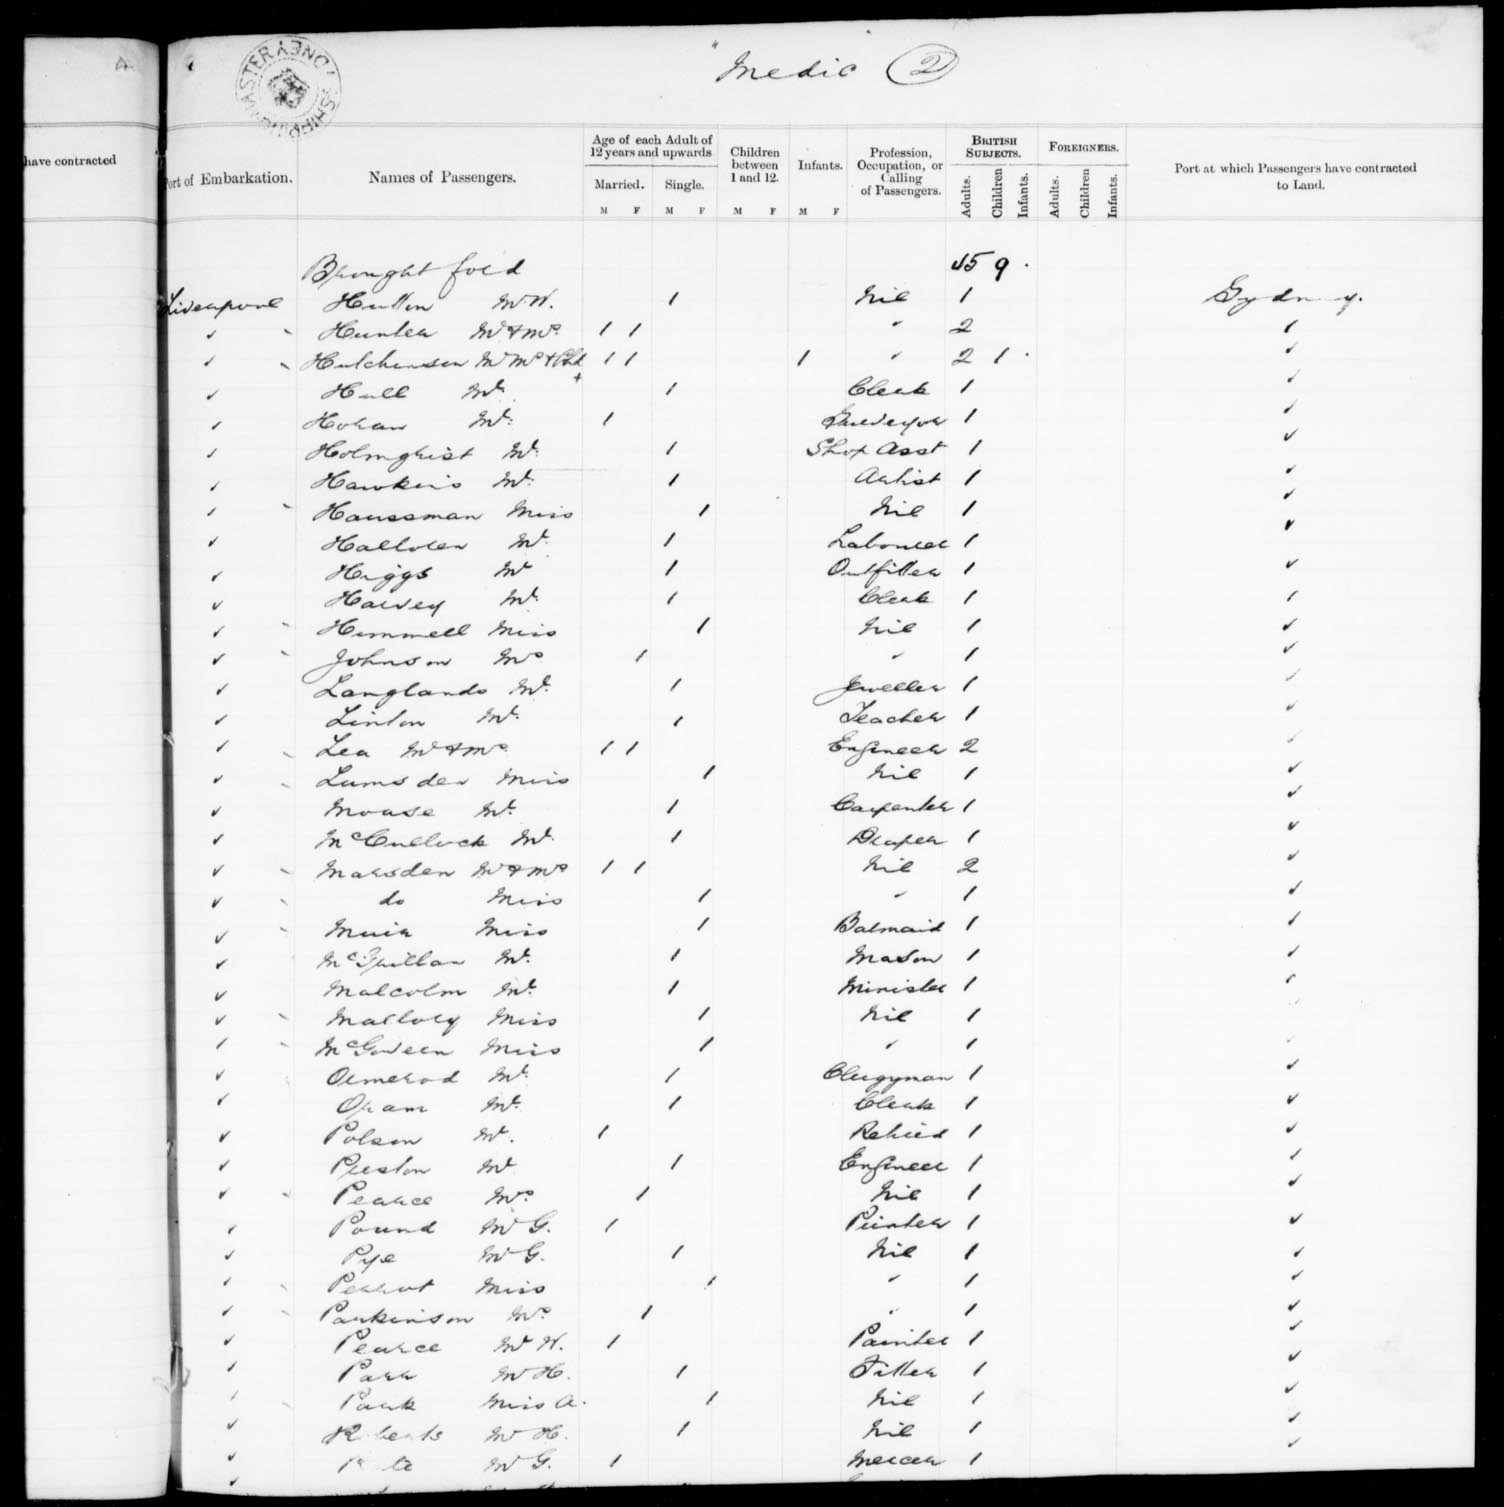 "Medic" 2
SHIPPING MASTER SYDNEY
have contracted
Port of Embarkation. Names of Passengers. Age of each Adult of 12 years and upwards Married. Single. M F M F Children between 1 and 12. M F Infants. M F Profession, Occupation, or Calling of Passengers. BRITISH SUBJECTS. Adults. Children Infants. FOREIGNERS. Adults. Children Infants. Port at which Passengers have contracted to Land.
Brought for'd 45 9 .
Liverpool Hutton Mr W. 1 Nil 1 Sydney.
✓ Hunter Mr & Mrs 1 1 " 2 ✓
✓ Hutchinson Mr Mrs & Chd 1 1 1 " 2 1 . ✓
✓ Hull Mr. 1 Clerk 1 ✓
✓ Horan Mr. 1 Surveyor 1 ✓
✓ Holmqhist Mr. 1 Shop Asst 1 ✓
✓ Hawkins Mr. 1 Artist 1 ✓
✓ Haussman Miss 1 Nil 1 ✓
✓ Halloren Mr. 1 Labourer 1 ✓
✓ Higgs Mr 1 Outfitter 1 ✓
✓ Harvey Mr. 1 Clerk 1 ✓
✓ Hummell Miss 1 Nil 1 ✓
✓ Johnson Mrs 1 " 1 ✓
✓ Langlands Mr. 1 Jeweller 1 ✓
✓ Linton Mr. 1 Teacher 1 ✓
✓ Lea Mr & Mrs 1 1 Engineer 2 ✓
✓ Lumsden Miss 1 Nil 1 ✓
✓ Mouse Mr. 1 Carpenter 1 ✓
✓ McCullock Mr. 1 Draper 1 ✓
✓ Marsden Mr & Mrs 1 1 Nil 2 ✓
✓ do Miss 1 " 1 ✓
✓ Muir Miss 1 Balmaid 1 ✓
✓ McQuillan Mr. 1 Mason 1 ✓
✓ Malcolm Mr. 1 Minister 1 ✓
✓ Mallory Miss 1 Nil 1
✓ McGovern Miss 1 " 1 ✓
✓ Ormerod Mr. 1 Clergyman 1 ✓
✓ Oram Mr. 1 Clerk 1 ✓
✓ Polson Mr. 1 Retired 1 ✓
✓ Preston Mr 1 Engineer 1 ✓
✓ Pearce Mrs 1 Nil 1 ✓
✓ Pound Mr G. 1 Printer 1 ✓
✓ Pye Mr G. 1 Nil 1 ✓
✓ Perrot Miss 1 " 1 ✓
✓ Parkinson Mrs 1 " 1 ✓
✓ Pearce Mr W. 1 Painter 1 ✓
✓ Parr Mr H. 1 Fitter 1 ✓
✓ Park Miss A. 1 Nil 1 ✓
✓ Roberts Mr H. 1 Nil 1 ✓
✓ Mr G. 1 Mercer 1 ✓